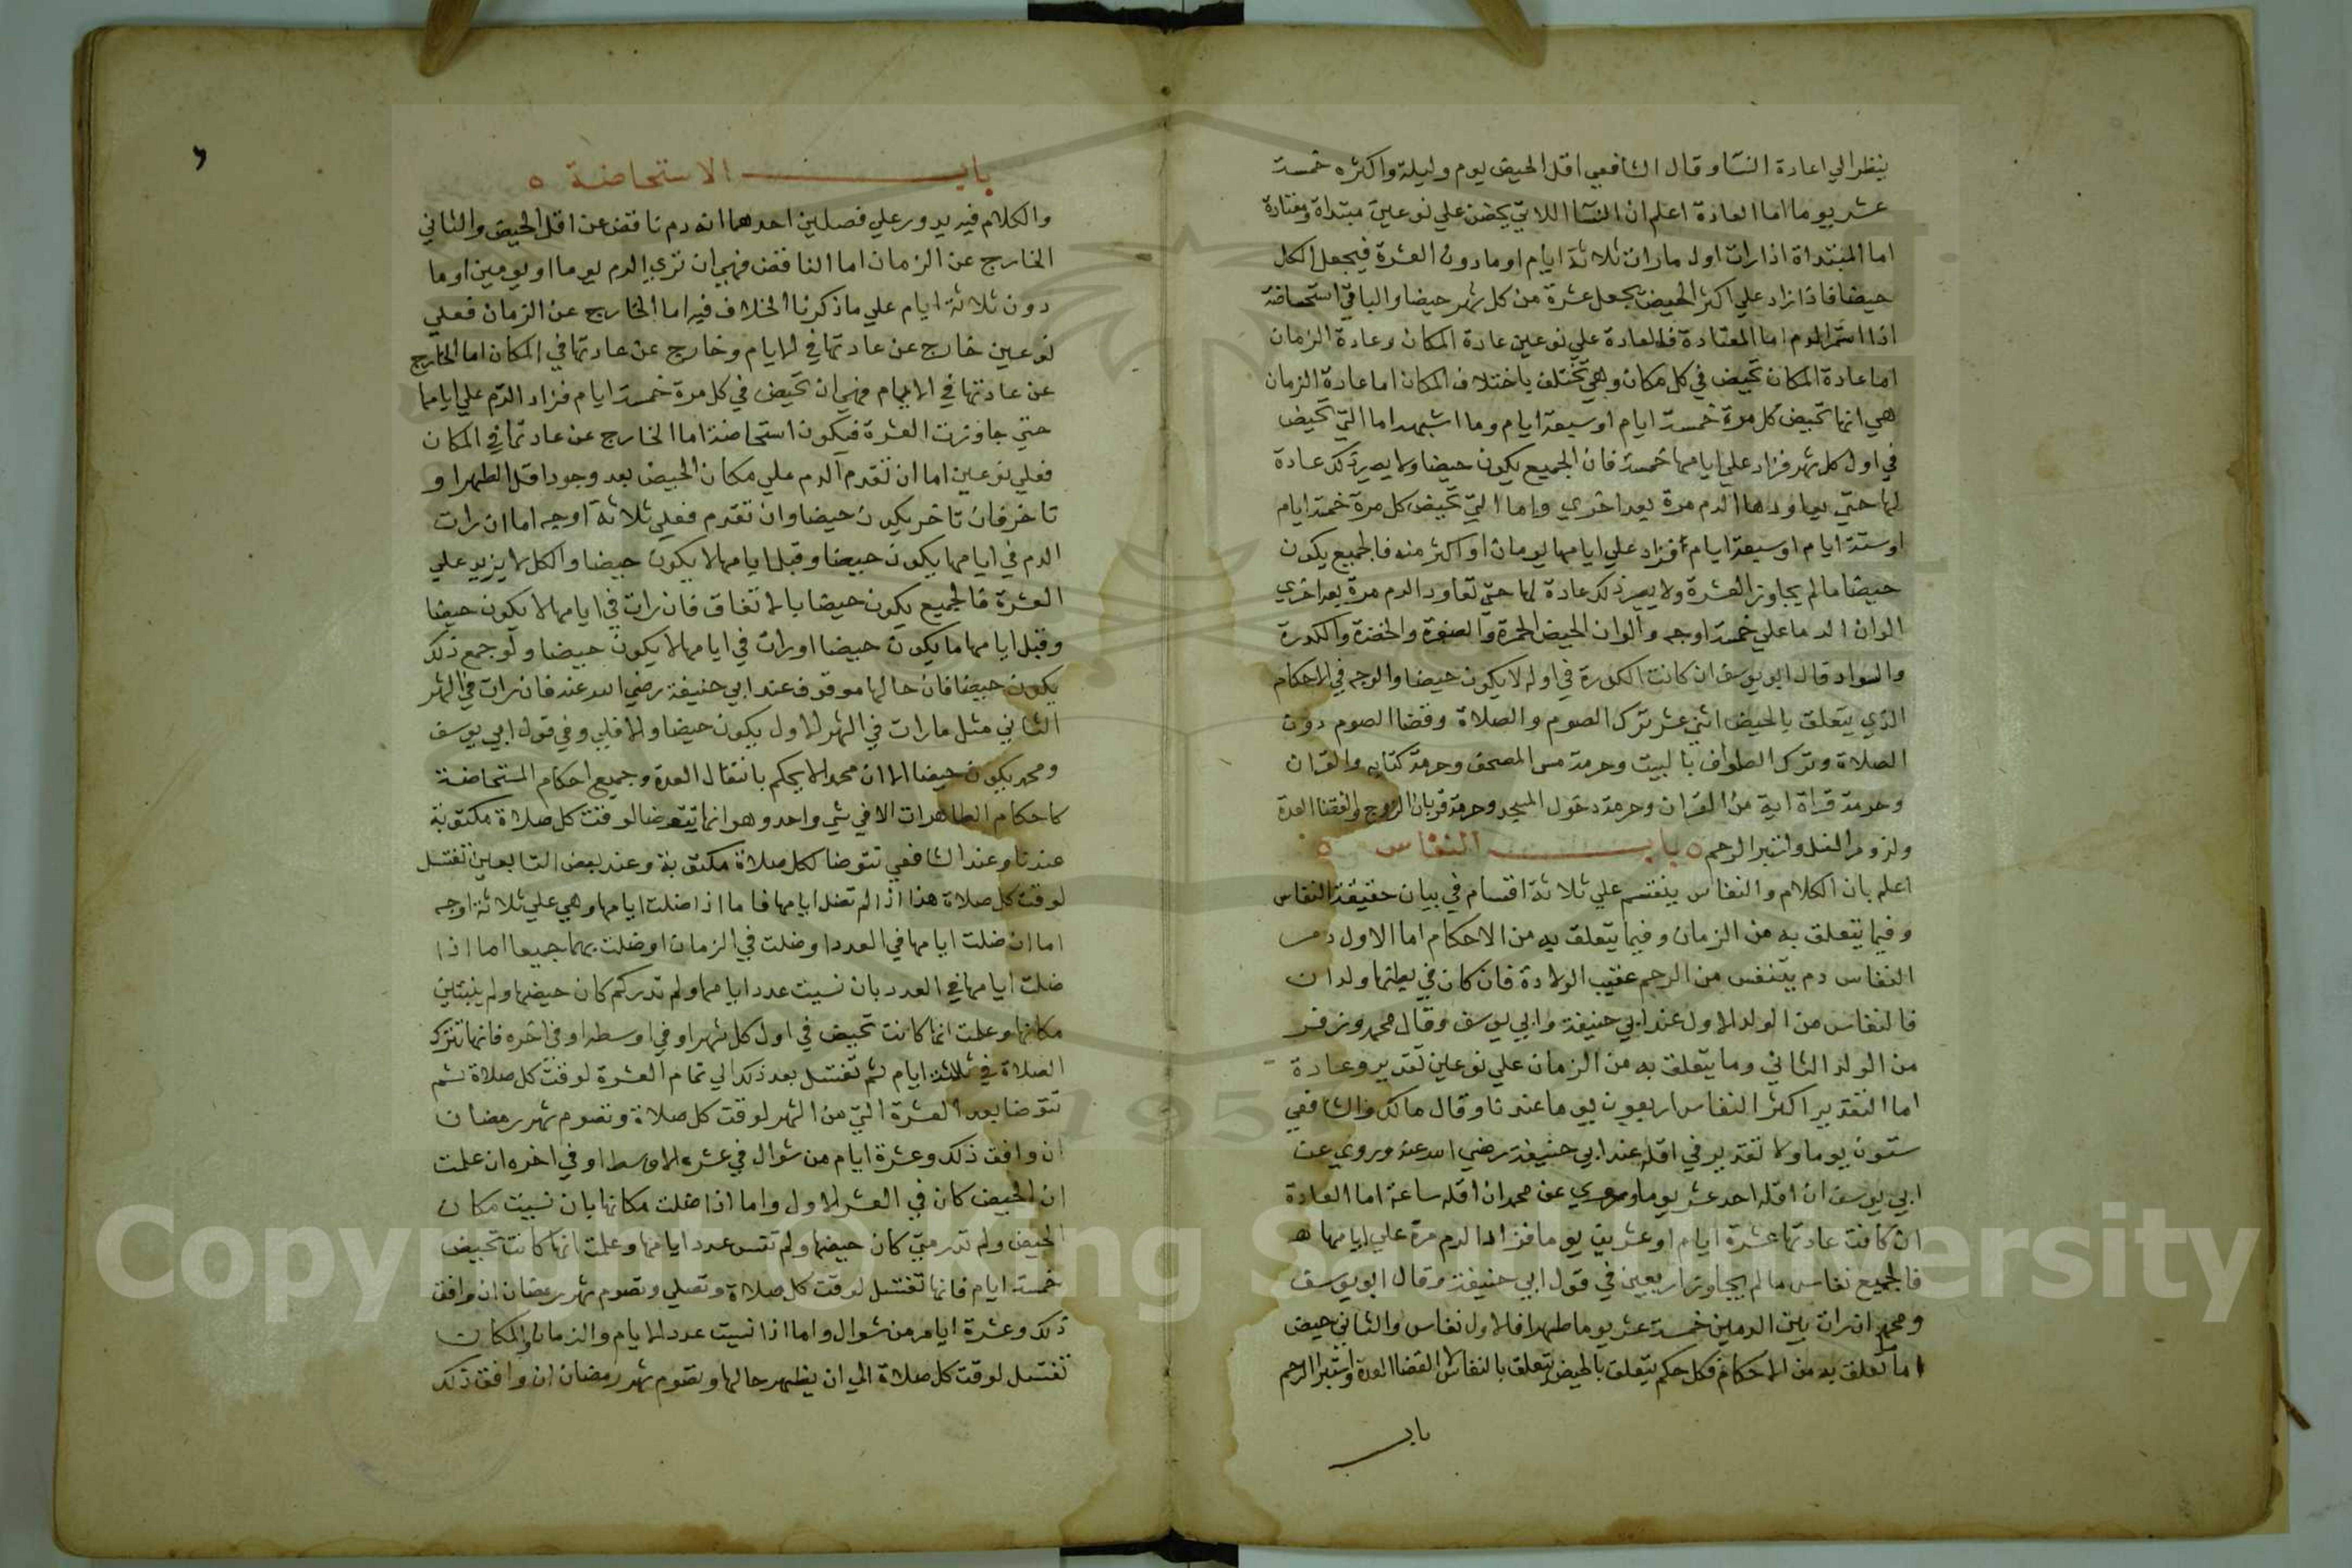 ينظر الي اعادة النسا وقال الشافعي اقل الحيض يوم وليلة واكثره خمسة
عشر يوما اما العادة اعلم ان النسا اللاتي يحضن علي نوعين مبتداة ومعتادة
اما المبتداة اذا رات اول مارات ثلاثة ايام او مادون العشرة فيجعل الكل
حيضا فاذا زاد علي اكثر الحيض يجعل عشرة من كل شهر حيضا والباقي استحاضة
اذا استمر الدم اما المعتادة فالعادة علي نوعين عادة المكان وعادة الزمان
اما عادة المكان تحيض في كل مكان وهي تختلف باختلاف المكان اما عادة الزمان
هي انها تحيض كل مرة خمسة ايام او سبعة ايام وما اشبهه اما التي تحيض
في اول كل شهر فزاد علي ايامها خمسة فان الجميع يكون حيضا ولا يصير ذلك عادة
لها حتي يعاودها الدم مرة بعد اخري واما التي تحيض كل مرة خمسة ايام
او ستة ايام او سبعة ايام فزاد علي ايامها يومان او اكثر منه فالجميع يكون
حيضا مالم يجاوز العشرة ولا يصير ذلك عادة لها حتي تعاود الدم مرة بعد اخري
الوان الدما علي خمسة اوجه والوان الحيض الحمرة والصفرة والخضرة والكدرة
والسواد قال ابو يوسف ان كانت الكدرة في اوله لا يكون حيضا والوجه في الاحكام
الذي يتعلق بالحيض اثني عشر ترك الصوم والصلاة وقضا الصوم دون
الصلاة وترك الطواف بالبيت وحرمة مس المصحف وحرمة كتابه والقران
وحرمة قراة اية من القران وحرمة دخول المسجد وحرمة قربان الزوج وانقضا العدة
ولزوم الغسل واستبرا الرحم ٥ باب النفاس ٥
اعلم بان الكلام والنفاس ينقسم علي ثلاثة اقسام في بيان حقيقة النفاس
وفيما يتعلق به من الزمان وفيما يتعلق به من الاحكام اما الاول دم
النفاس دم يتنفس من الرحم عقيب الولادة فان كان في بطنها ولدان
فالنفاس من الولد الاول عند ابي حنيفة وابي يوسف وقال محمد وزفر
من الولد الثاني وما يتعلق به من الزمان علي نوعين تقدير وعادة
اما التقدير اكثر النفاس اربعون يوما عندنا وقال مالك والشافعي
ستون يوما ولا تقدير في اقله عند ابي حنيفة رضي الله عنه وروي عن
ابي يوسف ان اقله احد عشر يوما وروي عن محمد ان اقله ساعة اما العادة
ان كانت عادتها عشرة ايام او عشرين يوما فزاد الدم مرة علي ايامها
فالجميع نفاس مالم يجاوز اربعين في قول ابي حنيفة وقال ابو يوسف
ومحمد ان رات بين الدمين خمسة عشر يوما طهرا فالاول نفاس والثاني حيض
اما تعلق به من الاحكام فكل حكم يتعلق بالحيض يتعلق بالنفاس الا انقضا العدة واستبرا الرحم
باب
باب الاستحاضة ٥
والكلام فيه يدور علي فصلين احدهما انه دم ناقص عن اقل الحيض والثاني
الخارج عن الزمان اما الناقص فهي ان تري الدم يوما او يومين او ما
دون ثلاثة ايام علي ماذكرنا الخلاف فيه اما الخارج عن الزمان فعلي
نوعين خارج عن عادتها في الايام وخارج عن عادتها في المكان اما الخارج
عن عادتها في الايام فهي ان تحيض في كل مرة خمسة ايام فزاد الدم علي ايامها
حتي جاوزت العشرة فيكون استحاضة اما الخارج عن عادتها في المكان
فعلي نوعين اما ان تقدم الدم علي مكان الحيض بعد وجود اقل الطهر او
تاخر فان تاخر يكون حيضا وان تقدم فعلي ثلاثة اوجه اما ان رات
الدم في ايامها يكون حيضا وقبل ايامها لا يكون حيضا والكل لا يزيد علي
العشرة فالجميع يكون حيضا بالاتفاق فان رات في ايامها لا يكون حيضا
وقبل ايامها ما يكون حيضا او رات في ايامها لا يكون حيضا ولو جمع ذلك
يكون حيضا فان حالها موقوف عند ابي حنيفة رضي الله عنه فان رات في الشهر
الثاني مثل مارات في الشهر الاول يكون حيضا والا فلي وفي قول ابي يوسف
ومحمد يكون حيضا الا ان محمدا لا يحكم بانتقال العدة وجميع احكام المستحاضة
كاحكام الطاهرات الا في شي واحد وهو انها تتوضا لوقت كل صلاة مكتوبة
عندنا وعند الشافعي تتوضا لكل صلاة مكتوبة وعند بعض التابعين تغتسل
لوقت كل صلاة هذا اذا لم تضل ايامها فاما اذا ضلت ايامها وهي علي ثلاثة اوجه
اما ان ضلت ايامها في العدد او ضلت في الزمان او ضلت بهما جميعا اما اذا
ضلت ايامها في العدد بان نسيت عدد ايامها ولم تدر كم كان حيضها ولم
مكانها وعلمت انها كانت تحيض في اول كل شهر او في اوسطه او في اخره فانها تترك
الصلاة في ثلاثة ايام ثم تغتسل بعد ذلك الي تمام العشرة لوقت كل صلاة ثم
تتوضا بعد العشرة التي من الشهر لوقت كل صلاة وتصوم شهر رمضان
ان وافق ذلك وعشرة ايام من شوال في عشر الاوسط او في اخره ان علمت
ان الحيض كان في العشر الاول واما اذا ضلت مكانها بان نسيت مكان
الحيض ولم تدر متي كان حيضها ولم تنس عدد ايامها وعلمت انها كانت تحيض
خمسة ايام فانها تغتسل لوقت كل صلاة وتصلي وتصوم شهر رمضان ان وافق
ذلك وعشرة ايام من شوال واما اذا نسيت عدد الايام والزمان والمكان
تغتسل لوقت كل صلاة الي ان يظهر حالها وتصوم شهر رمضان ان وافق ذلك
Copyright © King Saud University
195